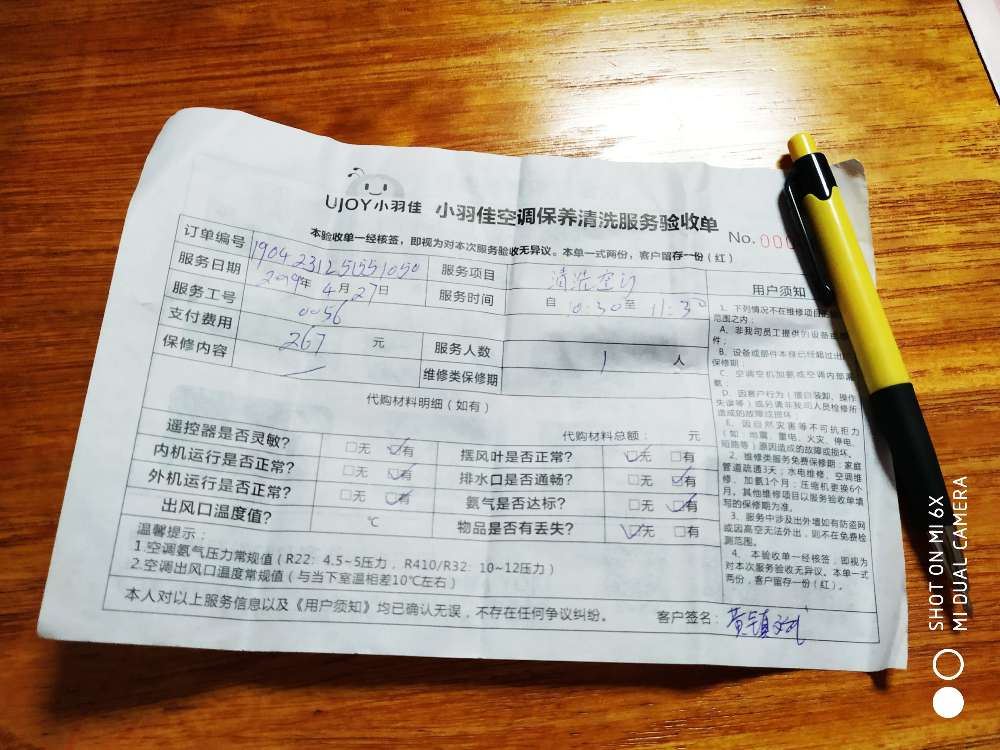 UJOY小羽佳 小羽佳空调保养清洗服务验收单
No. 000
本验收单一经核签，即视为对本次服务验收无异议。本单一式两份，客户留存一份（红）
订单编号 服务项目 清洗空
服务日期 2019年4月27日 服务时间 自10:30至11:30
服务工号 0056
支付费用 267 元 服务人数 1 人
保修内容 维修类保修期
代购材料明细（如有）
代购材料总额： 元
遥控器是否灵敏？ □无 ☑有 摆风叶是否正常？ ☑无 □有
内机运行是否正常？ □无 ☑有 排水口是否通畅？ □无 ☑有
外机运行是否正常？ □无 ☑有 氨气是否达标？ □无 ☑有
出风口温度值？ ℃ 物品是否有丢失？ ☑无 □有
温馨提示：
1.空调氨气压力常规值（R22：4.5~5压力，R410/R32：10~12压力）
2.空调出风口温度常规值（与当下室温相差10℃左右）
本人对以上服务信息以及《用户须知》均已确认无误，不存在任何争议纠纷。 客户签名：黄镇
用户须知
1、下列情况不在维修项目的
范围之内：
A、非我司员工提供的设备或
件；
B、设备或部件本身已经超过出
保修期
C、空调空机加氨或空调内部漏
氨
D、因客户行为（擅自装卸、操作
失误等）或另请非我司人员检修所
造成的故障或损坏
E、因自然灾害等不可抗拒力
（如：地震、雷电、火灾、停电、
短路等）原因造成的故障或损坏。
2、维修类服务免费保修期：家庭
管道疏通3天；水电维修、空调维
修、加氨1个月；压缩机更换6个
月。其他维修项目以服务验收单填
写的保修期为准。
3、服务中涉及出外墙如有防盗网
或因高空无法外出，则不在免费检
测范围。
4、本验收单一经核签，即视为
对本次服务验收无异议。本单一式
两份，客户留存一份（红）。
SHOT ON MI 6X
MI DUAL CAMERA